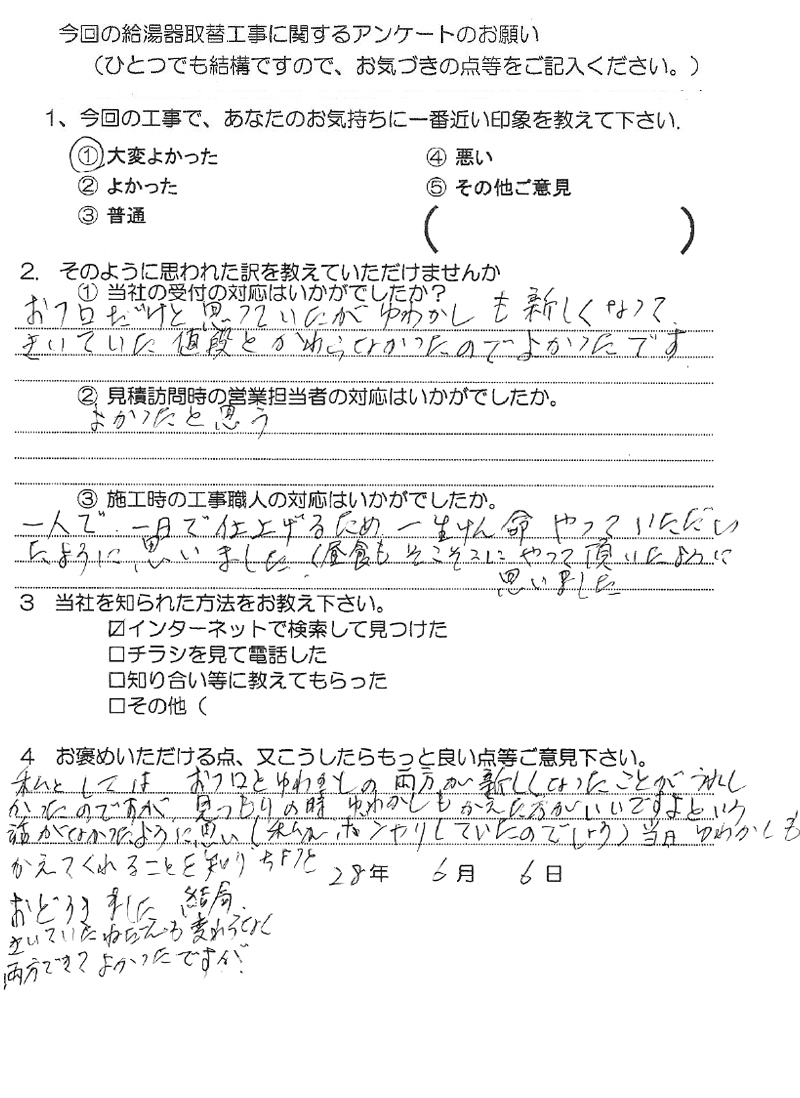 今回の給湯器取替工事に関するアンケートのお願い
(ひとつでも結構ですので、お気づきの点等をご記入ください。)
1、今回の工事で、あなたのお気持ちに一番近い印象を教えて下さい.
① 大変よかった
② よかった
③ 普通
④ 悪い
⑤ その他ご意見
( )
2. そのように思われた訳を教えていただけませんか
① 当社の受付の対応はいかがでしたか？
おフロだけと思っていたがゆわかしも新しくなって、
きいていた値段とかわらなかったのでよかったです
② 見積訪問時の営業担当者の対応はいかがでしたか。
よかったと思う
③ 施工時の工事職人の対応はいかがでしたか。
一人で、一日で仕上げるため、一生けん命やっていただい
たように思いました（昼食もそこそこにやって頂いたように
思いました
3 当社を知られた方法をお教え下さい。
☑インターネットで検索して見つけた
□チラシを見て電話した
□知り合い等に教えてもらった
□その他（
4 お褒めいただける点、又こうしたらもっと良い点等ご意見下さい。
私としては おフロとゆわかしの両方が新しくなったことがうれし
かったのですが、見つもりの時ゆわかしもかえた方がいいですよという
話がなかったように思い（私がボンヤリしていたのでしょう）当日ゆわかしも
かえてくれることを知りちょっと
28年 6月 6日
おどろきました 結局、
きいていたねだんも変わらなく
両方できてよかったですが